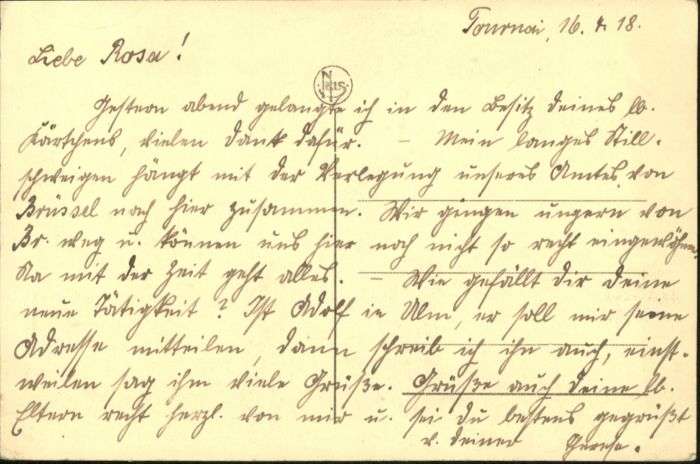 Tournai, 16. 4. 18.
Liebe Rosa!
Gestern abend gelangte ich in den Besitz deines lb.
Kärtchens, vielen Dank dafür. – Mein langes Still-
schweigen hängt mit der Verlegung unseres Amtes von
Brüssel nach hier zusammen. Wir gingen ungern von
Br. weg u. können uns hier noch nicht so recht eingewöhnen.
Na mit der Zeit geht alles. – Wie gefällt dir deine
neue Tätigkeit? Ist Adolf in Ulm, er soll mir seine
Adresse mitteilen, dann schreib ich ihm auch, einst-
weilen sag ihm viele Grüße. Grüße auch deine lb.
Eltern recht herzl. von mir u. sei du bestens gegrüßt
v. deiner